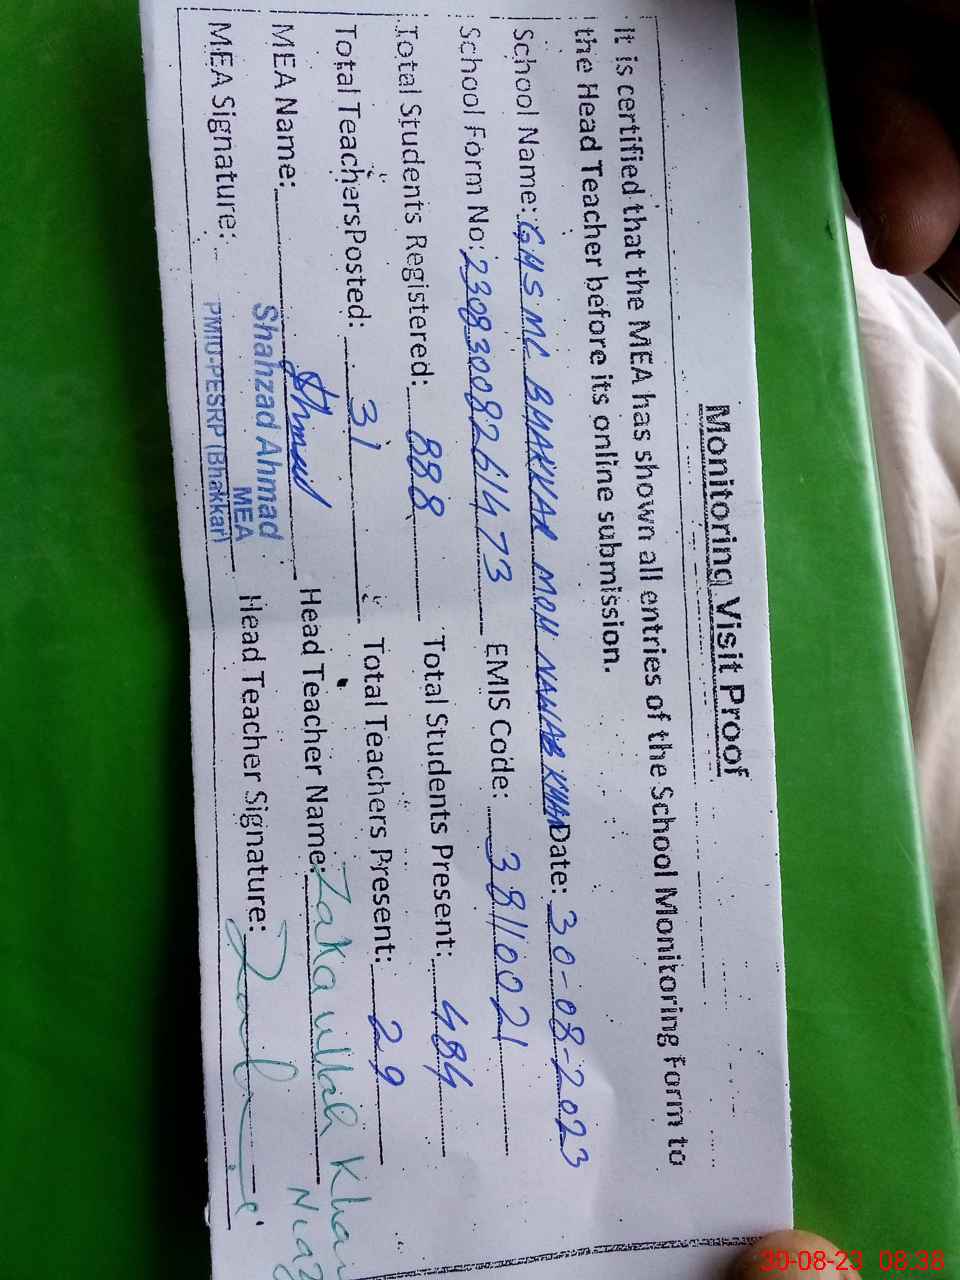 Monitoring Visit Proof
It is certified that the MEA has shown all entries of the School Monitoring Form to
the Head Teacher before its online submission.
School Name: GHS MC BHAKKAR MOH NAWAB KHAN Date: 30-08-2023
School Form No: 2308300826 1473 EMIS Code: 38110021
Total Students Registered: 888 Total Students Present: 484
Total Teachers Posted: 31 Total Teachers Present: 29
MEA Name: Head Teacher Name: Zaka ullah Khan
Niazi
MEA Signature: Head Teacher Signature:
Shahzad Ahmad
MEA
PMIU-PESRP (Bhakkar)
30-08-23 08:38